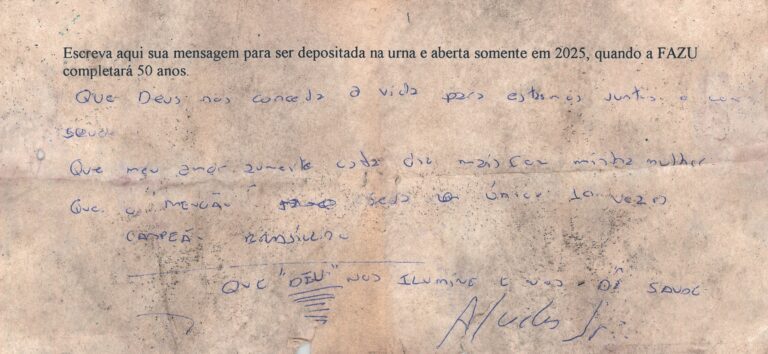 Escreva aqui sua mensagem para ser depositada na urna e aberta somente em 2025, quando a FAZU
completará 50 anos.
Que Deus nos conceda a vida para estarmos juntos e com
saude
Que meu amor aumente cada dia mais com minha mulher
Que o "MENGÃO" seja o único 10 vezes
CAMPEÃO BRASILEIRO
QUE "DEUS" NOS ILUMINE E NOS DÊ SAUDE